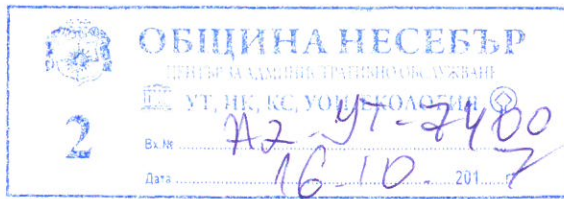 ОБЩИНА НЕСЕБЪР
ЦЕНТЪР ЗА АДМИНИСТРАТИВНО ОБСЛУЖВАНЕ
УТ, НК, КС, УОИ, ЕКОЛОГИЯ
2
Вх.№ Н2-УТ-7400
Дата 16.10. 2017